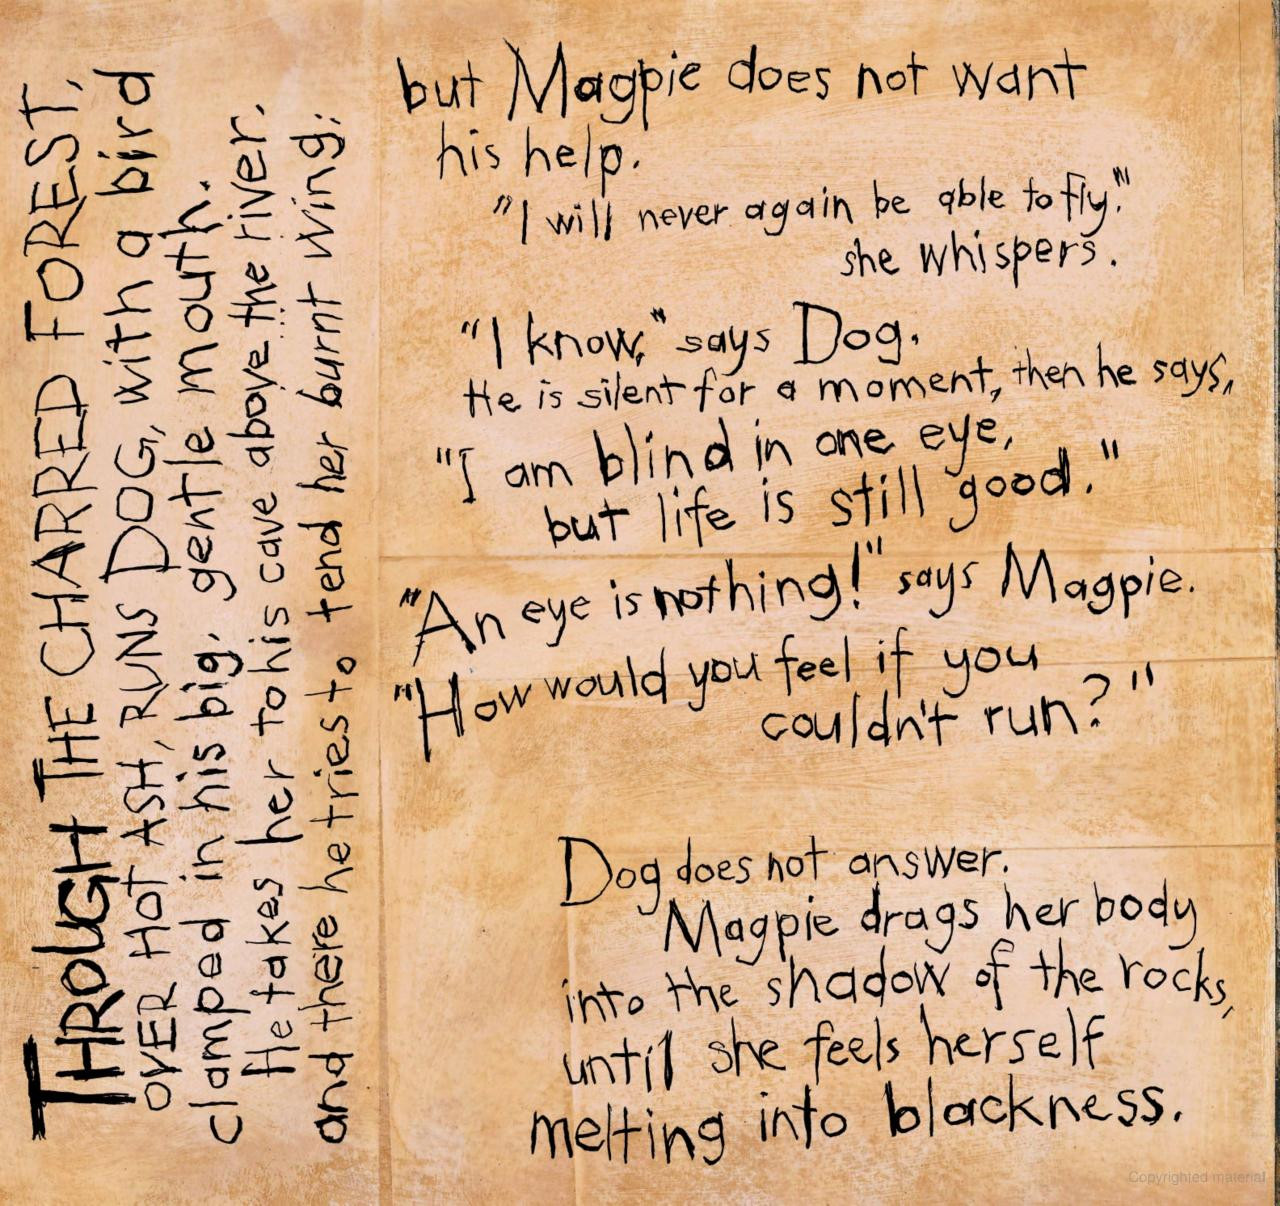 THROUGH THE CHARRED FOREST,
OVER HOT ASH, RUNS DOG, with a bird
clamped in his big, gentle mouth.
He takes her to his cave above the river.
and there he tries to tend her burnt wing;
but Magpie does not want
his help.
"I will never again be able to fly,"
she whispers.
"I know," says Dog.
He is silent for a moment, then he says,
"I am blind in one eye,
but life is still good."
"An eye is nothing!" says Magpie.
"How would you feel if you
couldn't run?"
Dog does not answer.
Magpie drags her body
into the shadow of the rocks,
until she feels herself
melting into blackness.
Copyrighted material